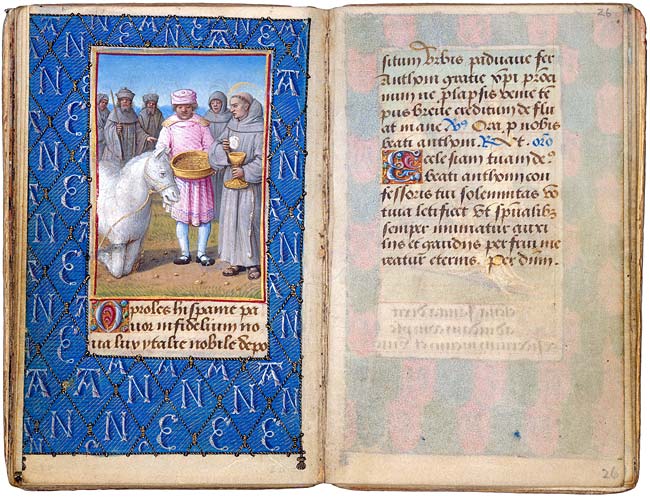 A N N E
O proles hispanie pa
uor infidelium no
ua lux ytalie nobile depo
26
situm Vrbis paduane fer
Anthoni gratie xpi proxi
mum ne prelapsis venie te
pus breue creditum deflu
at mane Vs Ora p nobis
beati anthoni t. oro
Ecclesiam tuam de9
beati anthonii con
fessoris tui solemnitas vo
tiua letificet vt spualib9
semper muniatur auxi
liis et gaudiis perfrui me
reatur eternis. Per dnm.
26